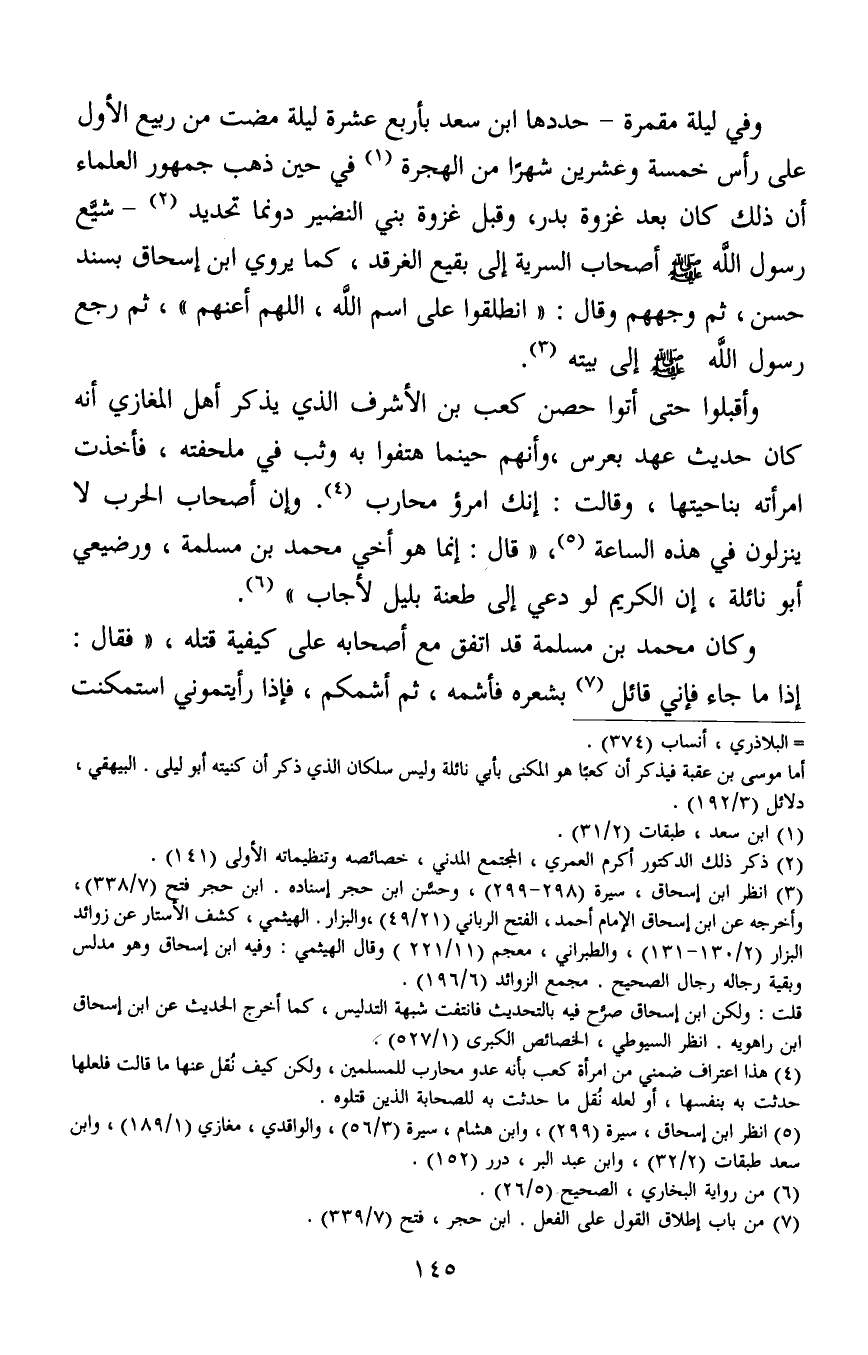 وفي ليلة مقمرة – حددها ابن سعد بأربع عشرة ليلة مضت من ربيع الأول
على رأس خمسة وعشرين شهرًا من الهجرة (١) في حين ذهب جمهور العلماء
أن ذلك كان بعد غزوة بدر، وقبل غزوة بني النضير دونما تحديد (٢) – شيَّع
رسول اللَّه ﷺ أصحاب السرية إلى بقيع الغرقد ، كما يروي ابن إسحاق بسند
حسن ، ثم وجههم وقال : « انطلقوا على اسم اللَّه ، اللهم أعنهم » ، ثم رجع
رسول اللَّه ﷺ إلى بيته (٣).
وأقبلوا حتى أتوا حصن كعب بن الأشرف الذي يذكر أهل المغازي أنه
كان حديث عهد بعرس ،وأنهم حينما هتفوا به وثب في ملحفته ، فأخذت
امرأته بناحيتها ، وقالت : إنك امرؤ محارب (٤). وإن أصحاب الحرب لا
ينزلون في هذه الساعة (٥)، « قال : إنما هو أخي محمد بن مسلمة ، ورضيعي
أبو نائلة ، إن الكريم لو دعي إلى طعنة بليل لأجاب » (٦).
وكان محمد بن مسلمة قد اتفق مع أصحابه على كيفية قتله ، « فقال :
إذا ما جاء فإني قائل (٧) بشعره فأشمه ، ثم أشمكم ، فإذا رأيتموني استمكنت
= البلاذري ، أنساب (٣٧٤) .
أما موسى بن عقبة فيذكر أن كعبًا هو المكنى بأبي نائلة وليس سلكان الذي ذكر أن كنيته أبو ليلى . البيهقي ،
دلائل (١٩٢/٣) .
(١) ابن سعد ، طبقات (٣١/٢) .
(٢) ذكر ذلك الدكتور أكرم العمري ، المجتمع المدني ، خصائصه وتنظيماته الأولى (١٤١) .
(٣) انظر ابن إسحاق ، سيرة (٢٩٨-٢٩٩) ، وحسَّن ابن حجر إسناده . ابن حجر فتح (٣٣٨/٧)،
وأخرجه عن ابن إسحاق الإمام أحمد ، الفتح الرباني (٤٩/٢١) ،والبزار . الهيثمي ، كشف الأستار عن زوائد
البزار (١٣٠/٢-١٣١) ، والطبراني ، معجم (٢٢١/١١ ) وقال الهيثمي : وفيه ابن إسحاق وهو مدلس
وبقية رجاله رجال الصحيح . مجمع الزوائد (١٩٦/٦) .
قلت : ولكن ابن إسحاق صرَّح فيه بالتحديث فانتفت شبهة التدليس ، كما أخرج الحديث عن ابن إسحاق
ابن راهويه . انظر السيوطي ، الخصائص الكبرى (٥٢٧/١) .
(٤) هذا اعتراف ضمني من امرأة كعب بأنه عدو محارب للمسلمين ، ولكن كيف نُقل عنها ما قالت فلعلها
حدثت به بنفسها ، أو لعله نُقل ما حدثت به للصحابة الذين قتلوه .
(٥) انظر ابن إسحاق ، سيرة (٢٩٩) ، وابن هشام ، سيرة (٥٦/٣) ، والواقدي ، مغازي (١٨٩/١) ، وابن
سعد طبقات (٣٢/٢) ، وابن عبد البر ، درر (١٥٢) .
(٦) من رواية البخاري ، الصحيح (٢٦/٥) .
(٧) من باب إطلاق القول على الفعل . ابن حجر ، فتح (٣٣٩/٧) .
١٤٥